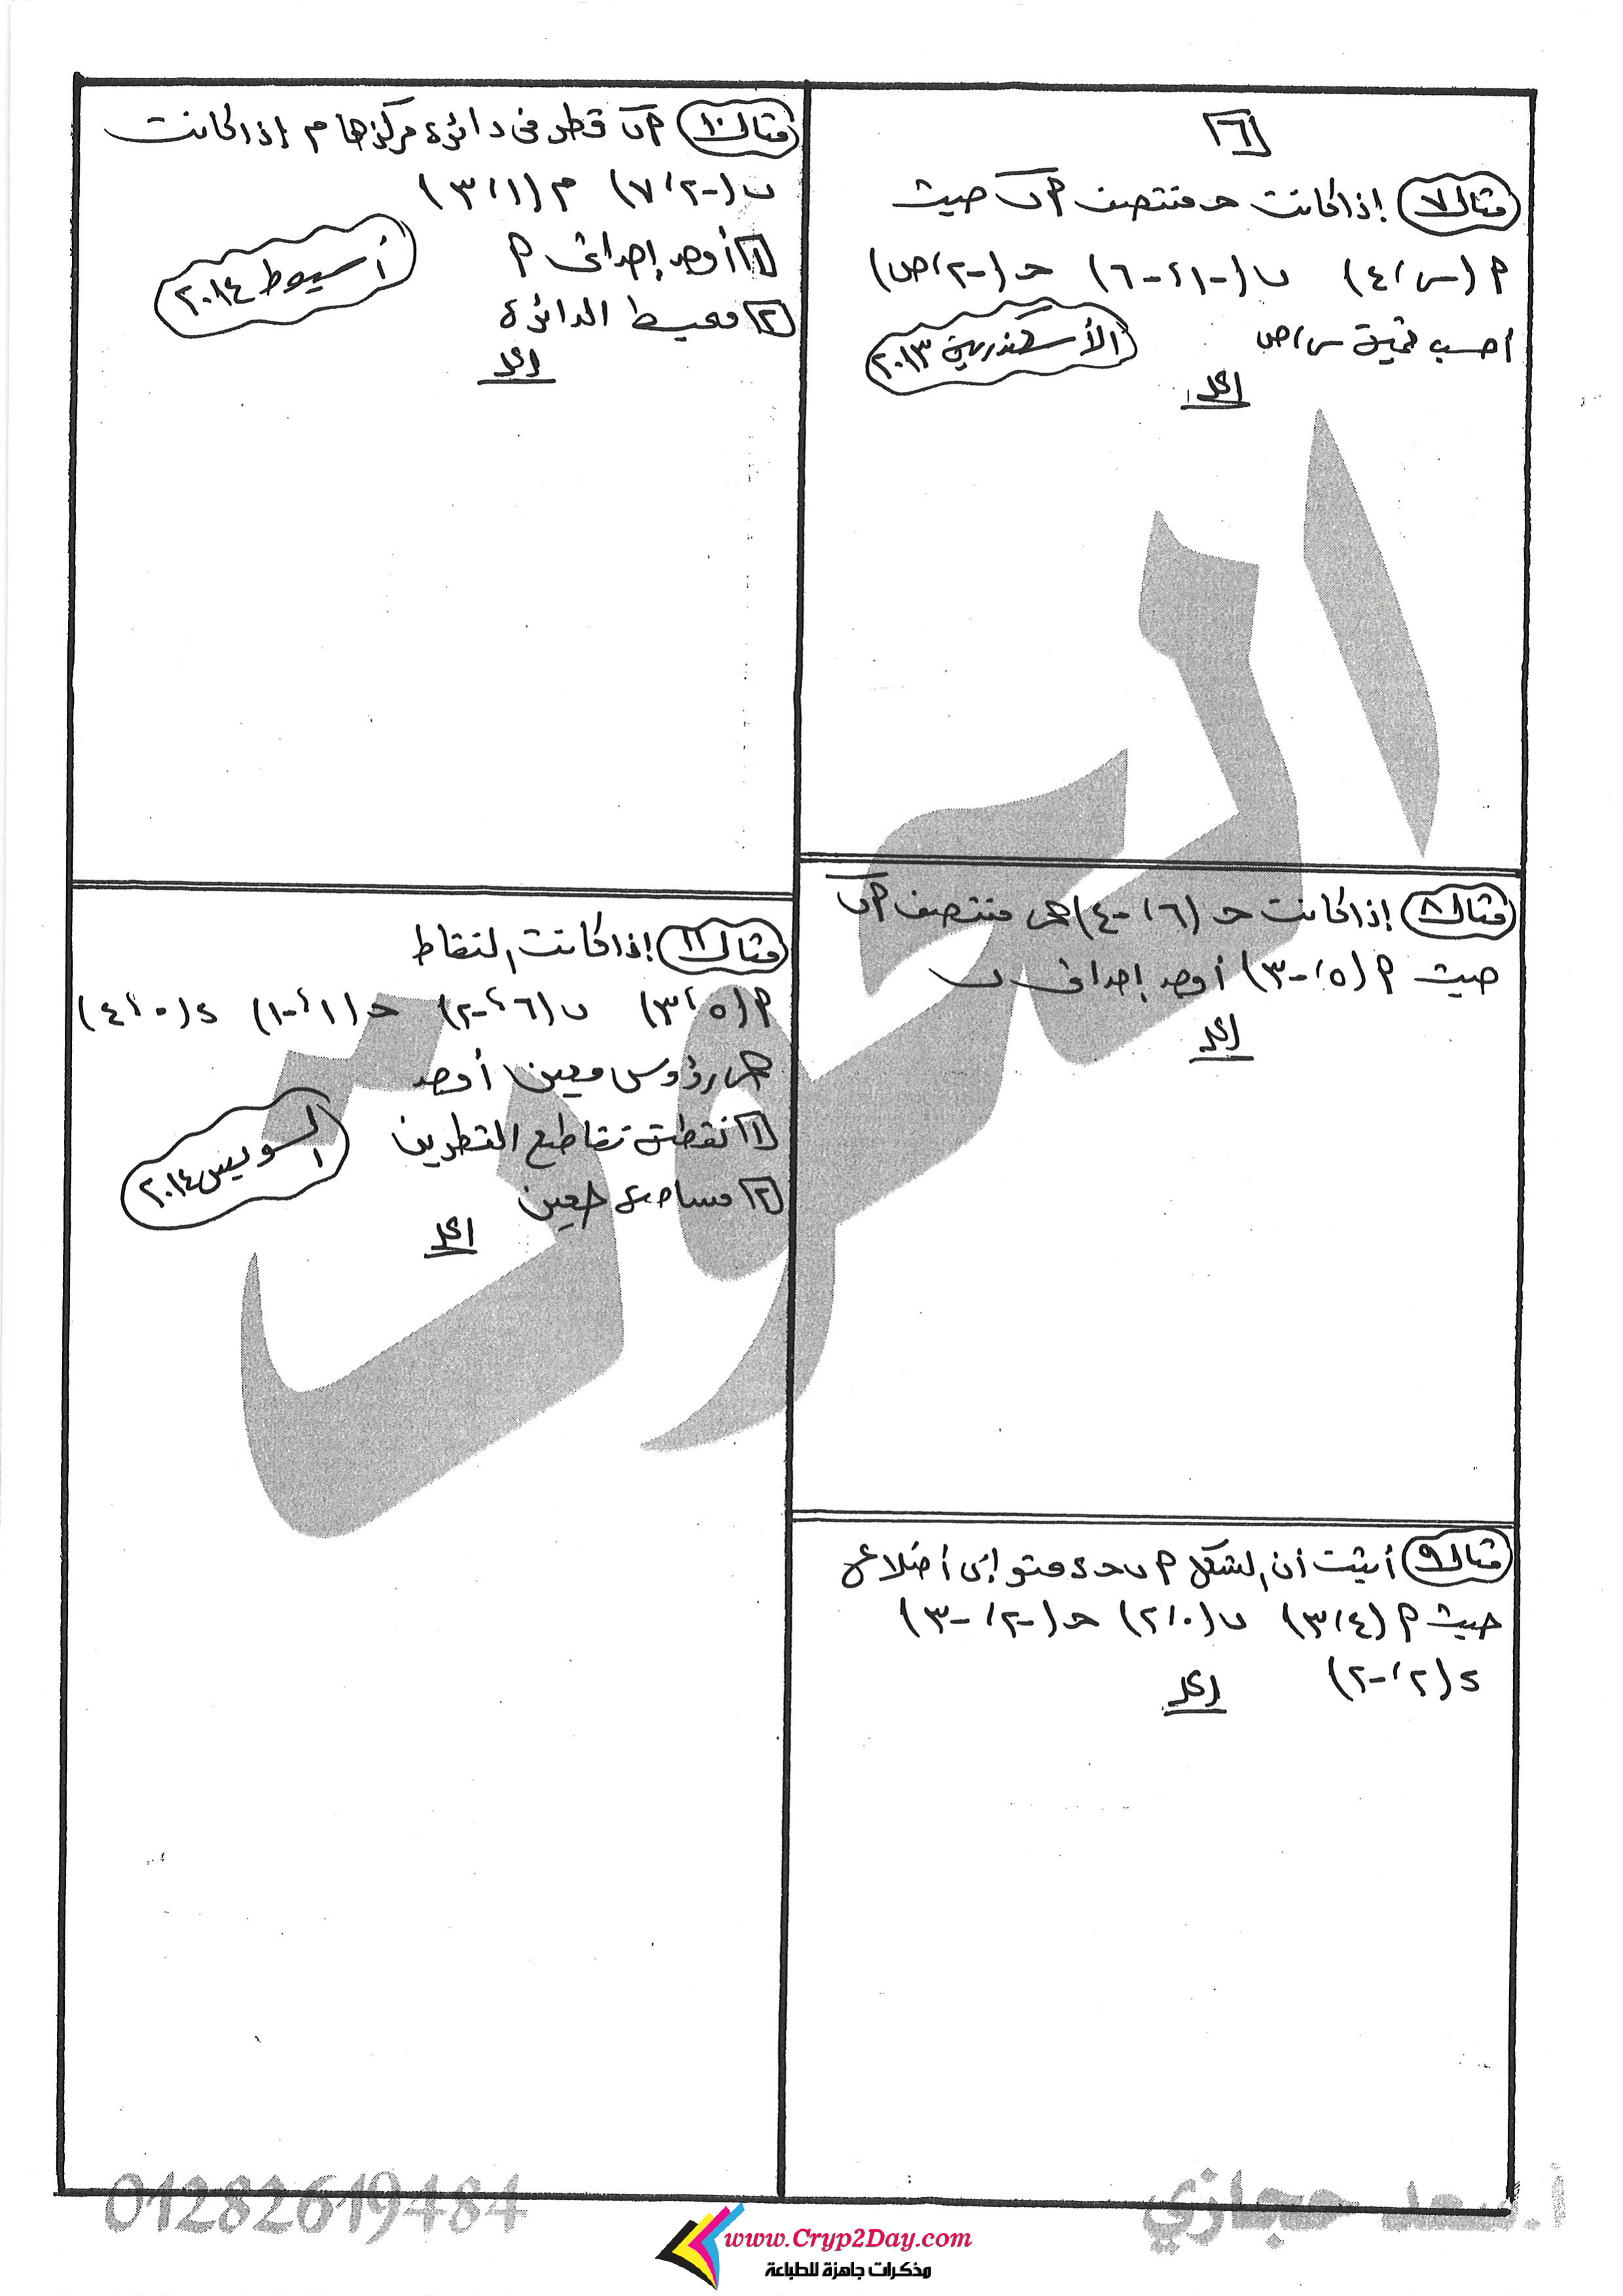 ٦
مثال ٧ إذا كانت حـ منتصف أب حيث
أ (س ، ٤) ب (-١ ، -٦) حـ (-٢ ، ص)
احسب قيمة س ، ص
الأسكندرية ٢٠١٣
الحل
مثال ٨ إذا كانت حـ (٦ ، -٤) هى منتصف أب
حيث أ (٥ ، -٣) أوجد إحداثى ب
الحل
مثال ٩ أثبت أن الشكل أ ب حـ ء متوازى أضلاع
حيث أ (٤ ، ٣) ب (٠ ، ٢) حـ (-٢ ، -٣)
ء (٢ ، -٢)
الحل
مثال ١٠ أب قطر فى دائرة مركزها م إذا كانت
ب (-٢ ، ٧) م (١ ، ٣)
١ أوجد إحداثى أ
٢ محيط الدائرة
أسيوط ٢٠١٤
الحل
مثال ١١ إذا كانت النقاط
أ (٥ ، ٣) ب (٦ ، -٢) حـ (١ ، -١) ء (٠ ، ٤)
هى رؤوس معين أوجد
١ نقطة تقاطع القطرين
٢ مساحة المعين
السويس ٢٠١٤
الحل
النحوت
أ. سعد حجازي
01282619484
www.Cryp2Day.com
مذكرات جاهزة للطباعة